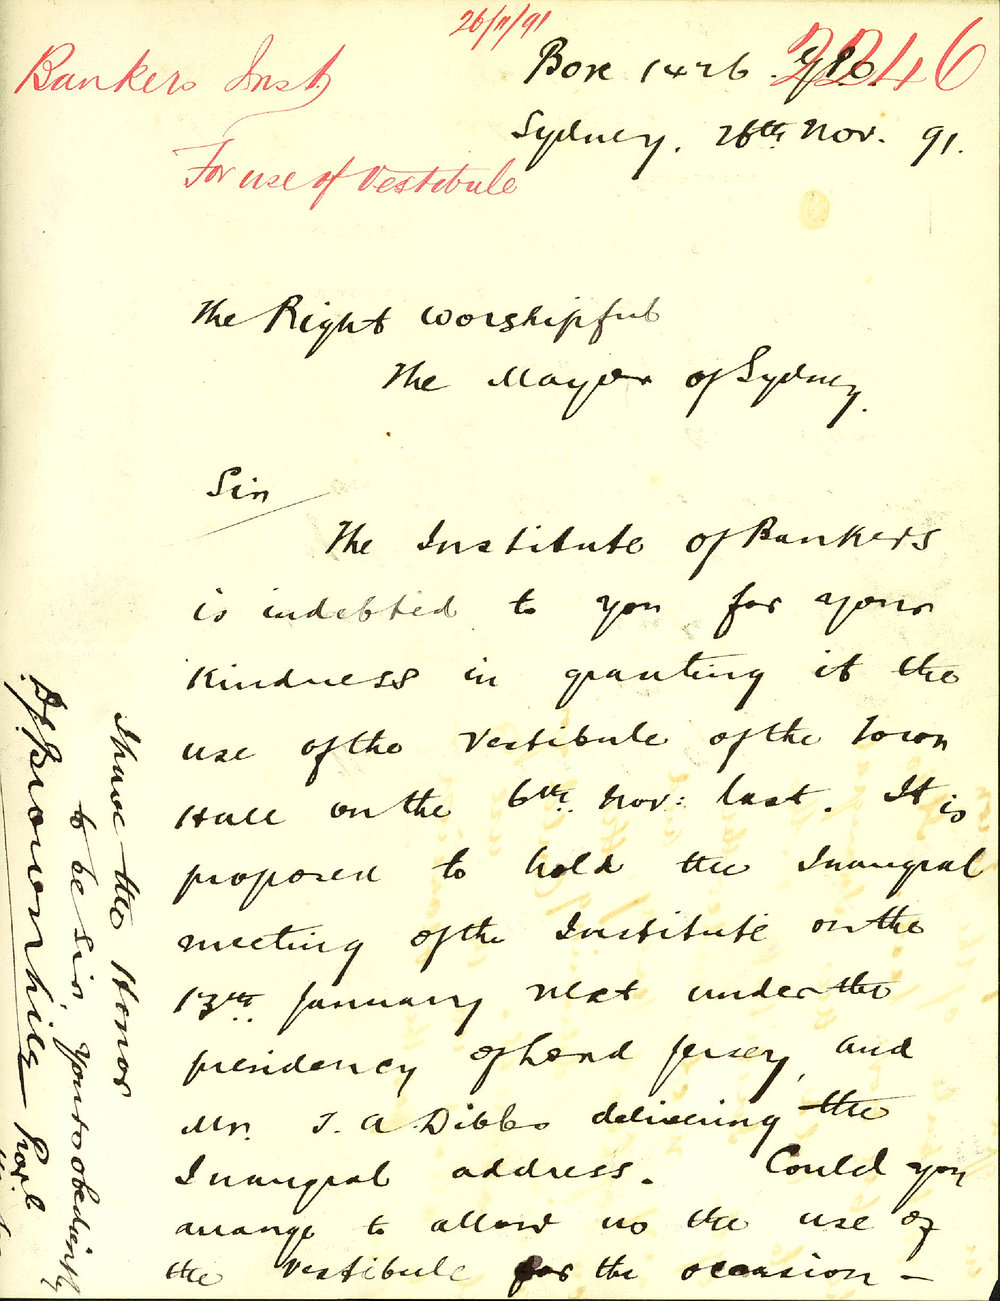 26/11/91
2246
Bankers Inst.
For use of Vestibule
Box 1426. GPO.
Sydney. 26th Nov. 91.
The Right Worshipful
The Mayor of Sydney.
Sir
The Institute of Bankers
is indebted to you for your
kindness in granting it the
use of the Vestibule of the Town
Hall on the 6th Nov: last. It is
proposed to hold the Inaugral
meeting of the Institute on the
13th January next under the
presidency of Lord Jersey, and
Mr. T. A Dibbs delivering the
Inaugral address. Could you
arrange to allow us the use of
the Vestibule for the occasion –
I have the Honor
to be Sir yours obediently